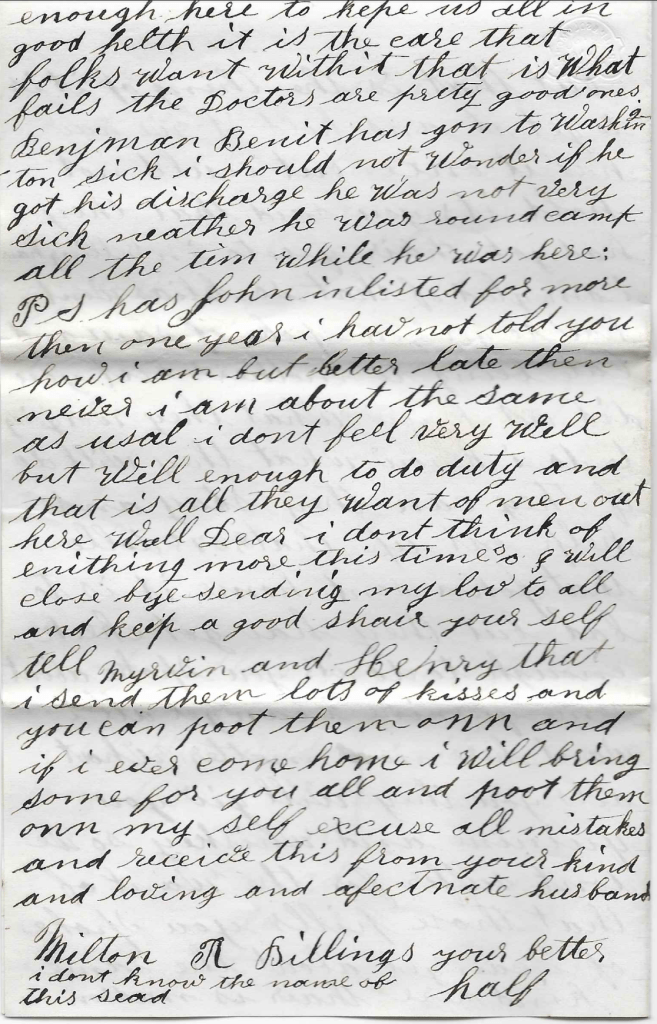 enough here to kepe us all in
good helth it is the care that
folks want withit that is What
fails the Doctors are prety good ones
Benjman Benit has gon to Washin
ton sick i should not Wonder if he
got his discharge he Was not very
sick neather he Was round camp
all the tim While he was here:
P S has John inlisted for more
then one year i hav not told you
how i am but better late then
never i am about the same
as usal i dont feel very Well
but Well enough to do duty and
that is all they Want of men out
here Well Dear i dont think of
enithing more this time so i Will
close bye sending my lov to all
and keep a good shair your self
tell Myrvin and Henry that
i send them lots of kisses and
you can poot them onn and
if i ever come home i Will bring
some for you all and poot them
onn my self excuse all mistakes
and receive this from your kind
and loving and afectnate husband
Milton R Billings your better
half
i dont know the name of
this sead